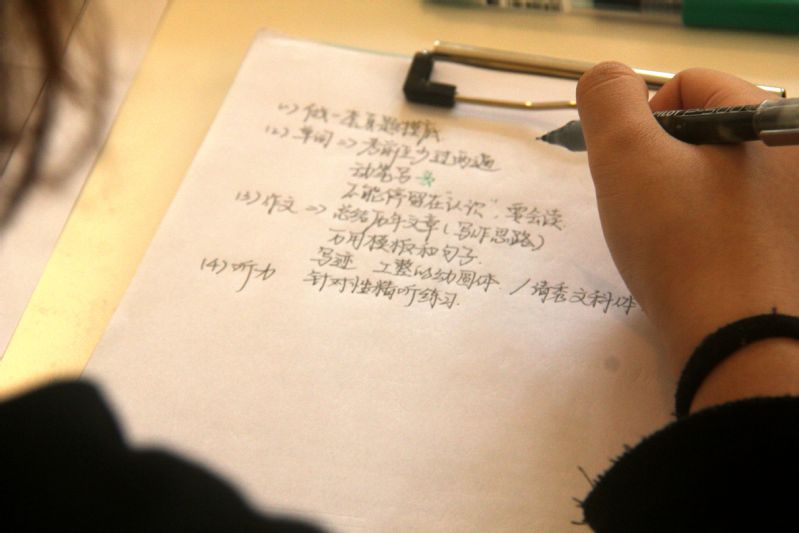 (1) 做一套真题摸底
(2) 单词 => 考前至少过两遍
动笔写
不能停留在"认识",要会读.
(3) 作文 => 总结历年文章(写作思路)
万用模板和句子.
写迹 工整的幼圆体. / 清秀文科体
(4) 听力 针对性精听练习.
PILOT